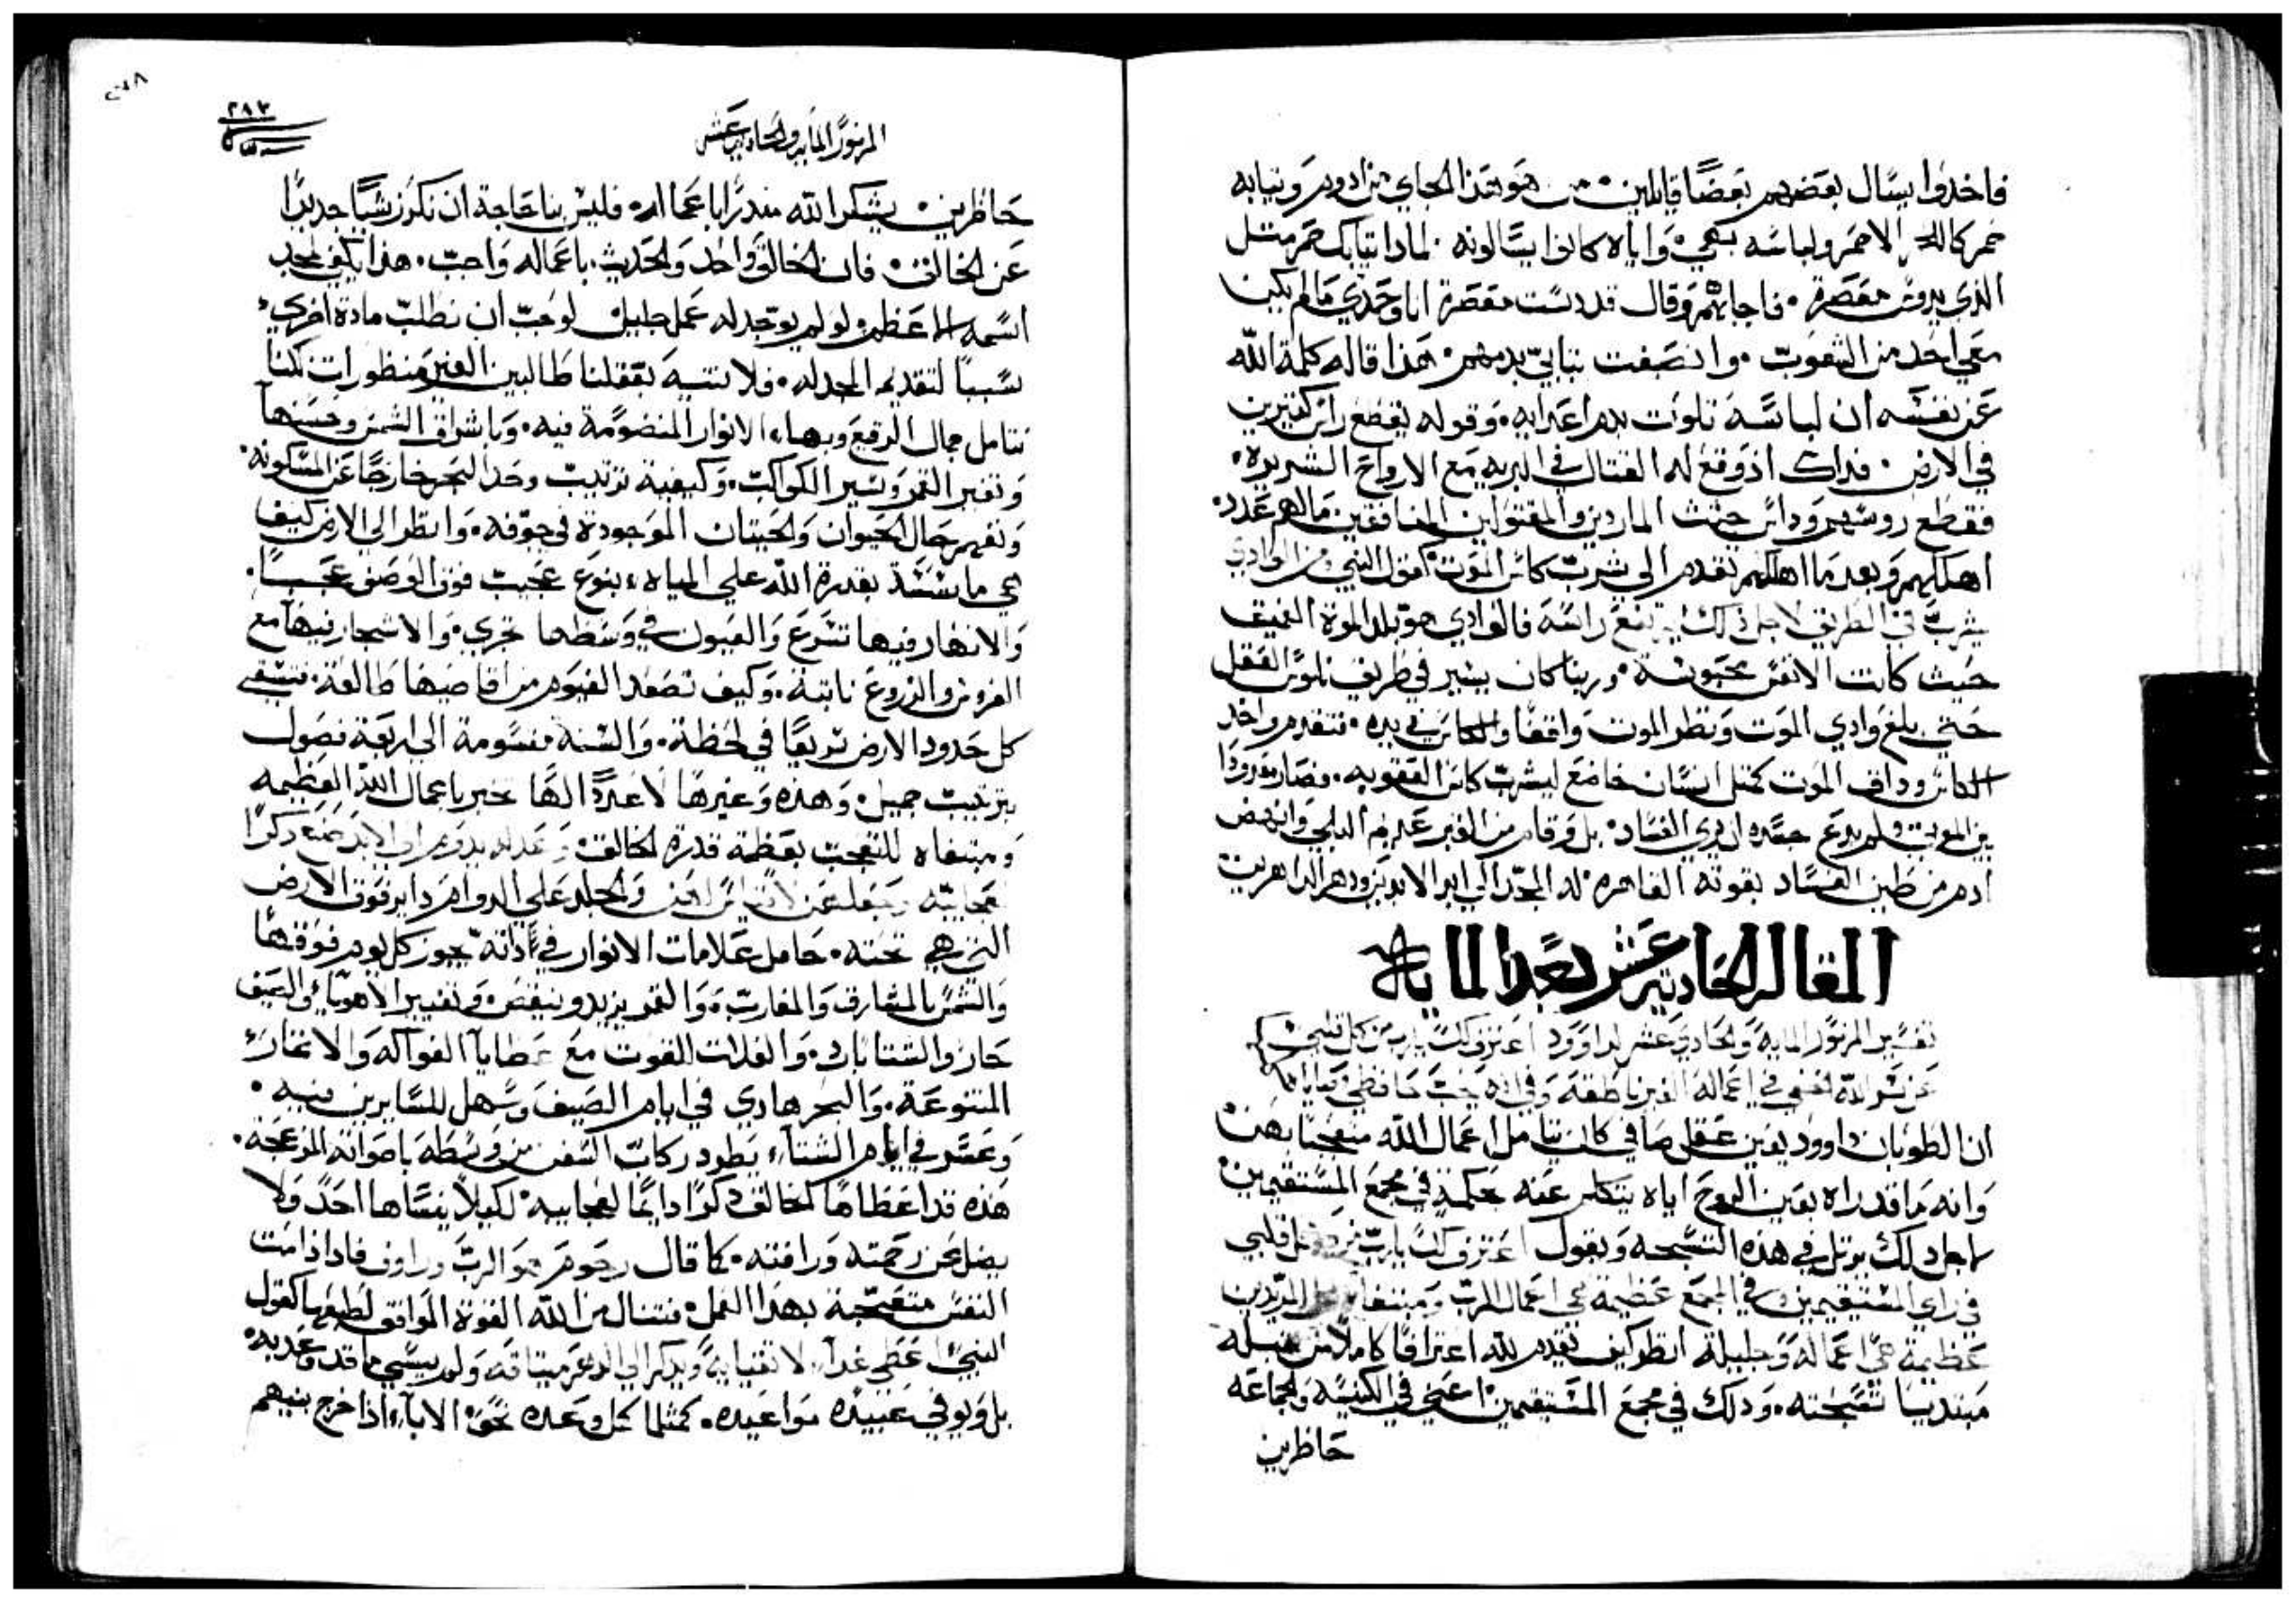 فاخدوا يسال بعضهم بعضًا قايلين من هو هذا الجاي من ادوم وثيابه
حمر كالخمر الاحمر ولباسه بهي واياه كانوا يسالونه لمادا تيابك حمر مثل
الذي يدوس معصرة فاجابهم وقال قد دست معصرة انا وحدي ما لم يكن
معي احد من الشعوب وانصبغت تيابي بدمهم هذا قاله كلمة الله
عن نفسه ان لباسه تلوت بدم اعدايه وقوله يقطع راس كتيرين
في الارض فداك اذ وقع له القتال في البريه مع الارواح الشريره
فقطع روسهم وداس جثث الماردين والمقتولين المنافقين ما لهم عدد
اهلكهم وبعدما اهلكهم تقدم الي شرب كاس الموت كقول النبي من الوادي
يشرب في الطريق لاجل ذلك يرتفع راسه فالوادي هو بلد الموة العميق
حيث كانت الانفس محبوسة وربنا كان يسير في طريف ناموس العقل
حتي بلغ وادي الموت ونظر الموت واقفا والكاس في يده فتقدم واخد
الكاس وداق الموت كمثل انسان خاضع ليشرب كاس العقوبه فصار معدودا
بين الموتي ولم يدع جسده ان يري الفساد بل وقام من القبر عديم البلي وانهض
ادم من طين الفساد بقوته القاهره له المجد الي ابد الابدين ودهر الداهرين
المقاله الحاديه عشر بعد المايه
تفسير المزمور المايه والحادي عشر لداوود اعترف لك يارب من كل قلبي
عن تسبحة الله في اعماله الغير ناطقه وفي انه يحب حافظي وصاياه
ان الطوبان داوود بعين عقل صافي كان يتامل اعمال الله متعجبا بهن
وانه ما قد راه بعين الروح اياه يتكلم عنه بحكمة في مجمع المستقيمين
لاجل دلك يرتل في هذه التسبحه ويقول اعترف لك يارب من كل قلبي
في راي المستقيمين وفي المجمع عظيمة هي اعمال الرب ومبتغاة كل المريدين
عظيمة هي اعماله وجليلة انظر كيف يقدم لله اعترافا كاملا من قبله
مبتديا تسبحته ودلك في مجمع المستقيمين اعني في الكنيسه والجماعه
حاظرين
٢٨٣
المزمور المايه والحاديه عشر
حاظرين يشكر الله مندرًا باعماله فليس بنا حاجة ان نكرز شيًا جديدًا
عن الخالق فان الخالق واحد والحديث باعماله واجب هذا يكفي لمجد
اسمه الاعظم ولو لم يوجد له عمل جليل لوجب ان نطلب مادة اخري
سببًا لتقديم المجد له فلا نتيه بعقلنا طالبين الغير منظورات لكننا
نتامل جمال الرقيع وبهاء الانوار المنضومة فيه وباشراق الشمس وحسنها
وتغير القمر وسير الكواكب وكيفية ترتيب وحد البحر خارجًا عن المسكونه
وتفهم حال الحيوان والحيتان الموجودة في جوفه وانظر الي الارض كيف
هي ماسسة بقدرة الله علي المياه بنوع عجيب فوق الوصف عجبًا
والانهار فيها تسرع والعيون في وسطها تجري والاشجار فيها مع
الغروس والزروع نابتة وكيف تصعد الغيوم من اقاصيها طالعة فتسقي
كل حدود الارض سريعًا في لحظة والسنة مقسومة الي اربعة فصول
بترتيب جميل وهذه وغيرها لا عددًا لها تخبر باعمال الله العظيمه
ومبتغاه للتعجب بعظمة قدرة الخالق وعدله يدوم الي الابد صنع ذكرًا
لعجايبه والجلد علي الدوام دايم فوق الارض
التي هي تحته حامل علامات الانوار في اداته يجوز كل يوم فوقها
والشمس بالمشارق والمغارب والقمر يزيد وينقص وتغيير الاهوية والصيف
حار والشتا بارد والغلات القوت مع عطايا الفواكه والاثمار
المتنوعة والبحر هادي في ايام الصيف وسهل للسايرين فيه
وعسر في ايام الشتاء يطود ركاب السفن من وسطه باصواته المزعجة
هذه قد اعطاها الخالق ذكرًا دايمًا لعجايبه لكيلا ينساها احد ولا
يضل عن رحمته ورافته كما قال رحوم هو الرب وراوف فاذا دامت
النفس متعجبة بهذا العمل فتنال من الله القوة الموافق لطبعها كقول
النبي اعطي غداء لاتقيايه ويدكر الي الدهر ميتاقه ولم ينسي ما قد وعد به
بل ويوفي عبيده مواعيده كمثلما كمل وعده نحو الاباء اذا خرج بنيهم